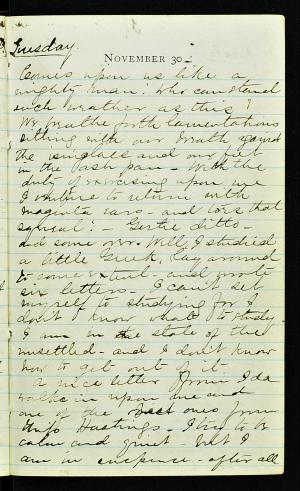 Tuesday.
NOVEMBER 30
Comes upon us like a
mighty man! Who can stand
such weather as this!
We breathe forth lamentations
sitting with our breath against
the isinglass and our feet
in the bash pan - With the
duty of exercising upon me
I venture to return with
magenta ears - and toes that
squeal! - Gertie ditto -
and some over. Well, I studied
a little Greek, lay around
to some extent - and wrote
six letters - I can't set
myself to studying for I
don't know what to study.
I am in the state of the
unsettled - and I don't know
how to get out of it.
A nice letter from Ida
walks in upon me and
one of the best ones from
Hastings - I try to be
calm and quiet - but I
am in suspense - after all